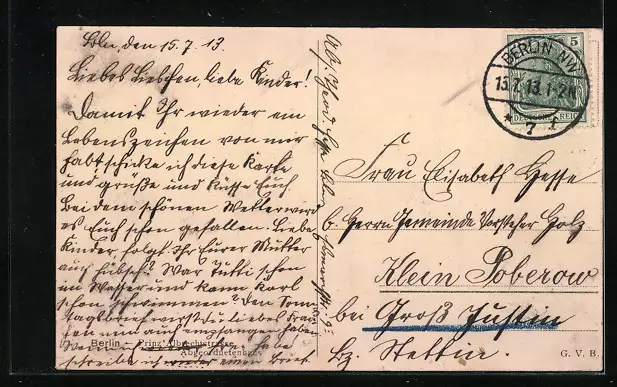 Bln, den 15.7.13.
Liebes Lieschen, liebe Kinder!
Damit Ihr wieder ein
Lebenszeichen von mir
habt schicke ich diese Karte
und grüße und küsse Euch.
Bei dem schönen Wetter wird
es Euch schon gefallen. Liebe
Kinder, folgt Ihr Eurer Mutter
auch hübsch? War Tutti schon
im Wasser und kann Karl
schon schwimmen? Den Sonn
tagsbrief wirst du liebes Frau
chen nun auch empfangen haben.
schreibe ich einen Brief
Berlin – Prinz Albrechtstrasse
Abgeordnetenhaus
BERLIN NW
15.7.13. 1-2N
* 7 i
5
DEUTSCHES REICH
Frau Elisabeth Hesse
b. Herrn Gemeinde Vorsteher Holz
Klein Poberow
bei Groß Justin
Bz. Stettin.
G. V. B.